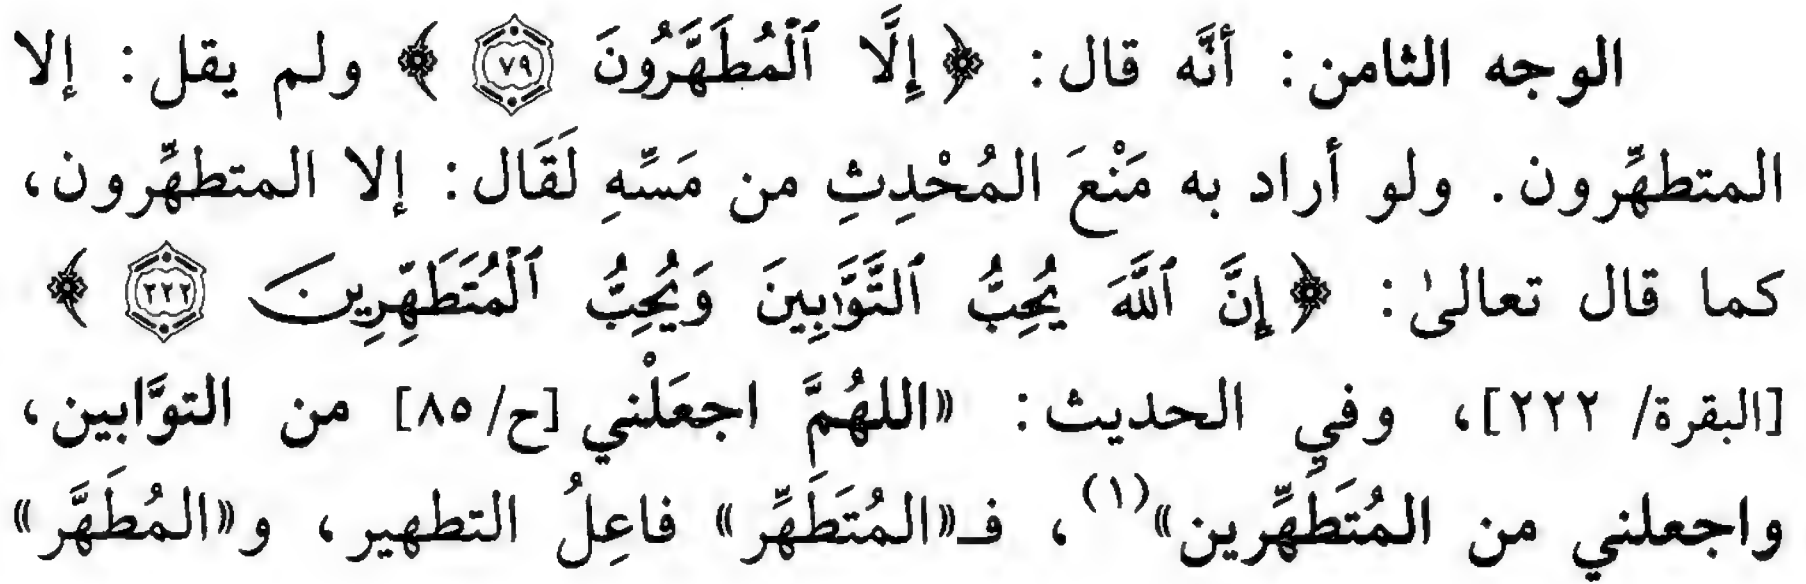 الوجه الثامن: أنَّه قال: ﴿إِلَّا ٱلْمُطَهَّرُونَ ۝٧٩﴾ ولم يقل: إلا
المتطهِّرون. ولو أراد به مَنْعَ المُحْدِثِ من مَسِّهِ لَقَال: إلا المتطهِّرون،
كما قال تعالىٰ: ﴿إِنَّ ٱللَّهَ يُحِبُّ ٱلتَّوَّٰبِينَ وَيُحِبُّ ٱلْمُتَطَهِّرِينَ ۝٢٢٢﴾
[البقرة/ ٢٢٢]، وفي الحديث: «اللهُمَّ اجعَلْني [ح/٨٥] من التوَّابين،
واجعلني من المُتَطَهِّرين»(١)، فـ«المُتَطَهِّر» فاعِلُ التطهير، و«المُطَهَّر»